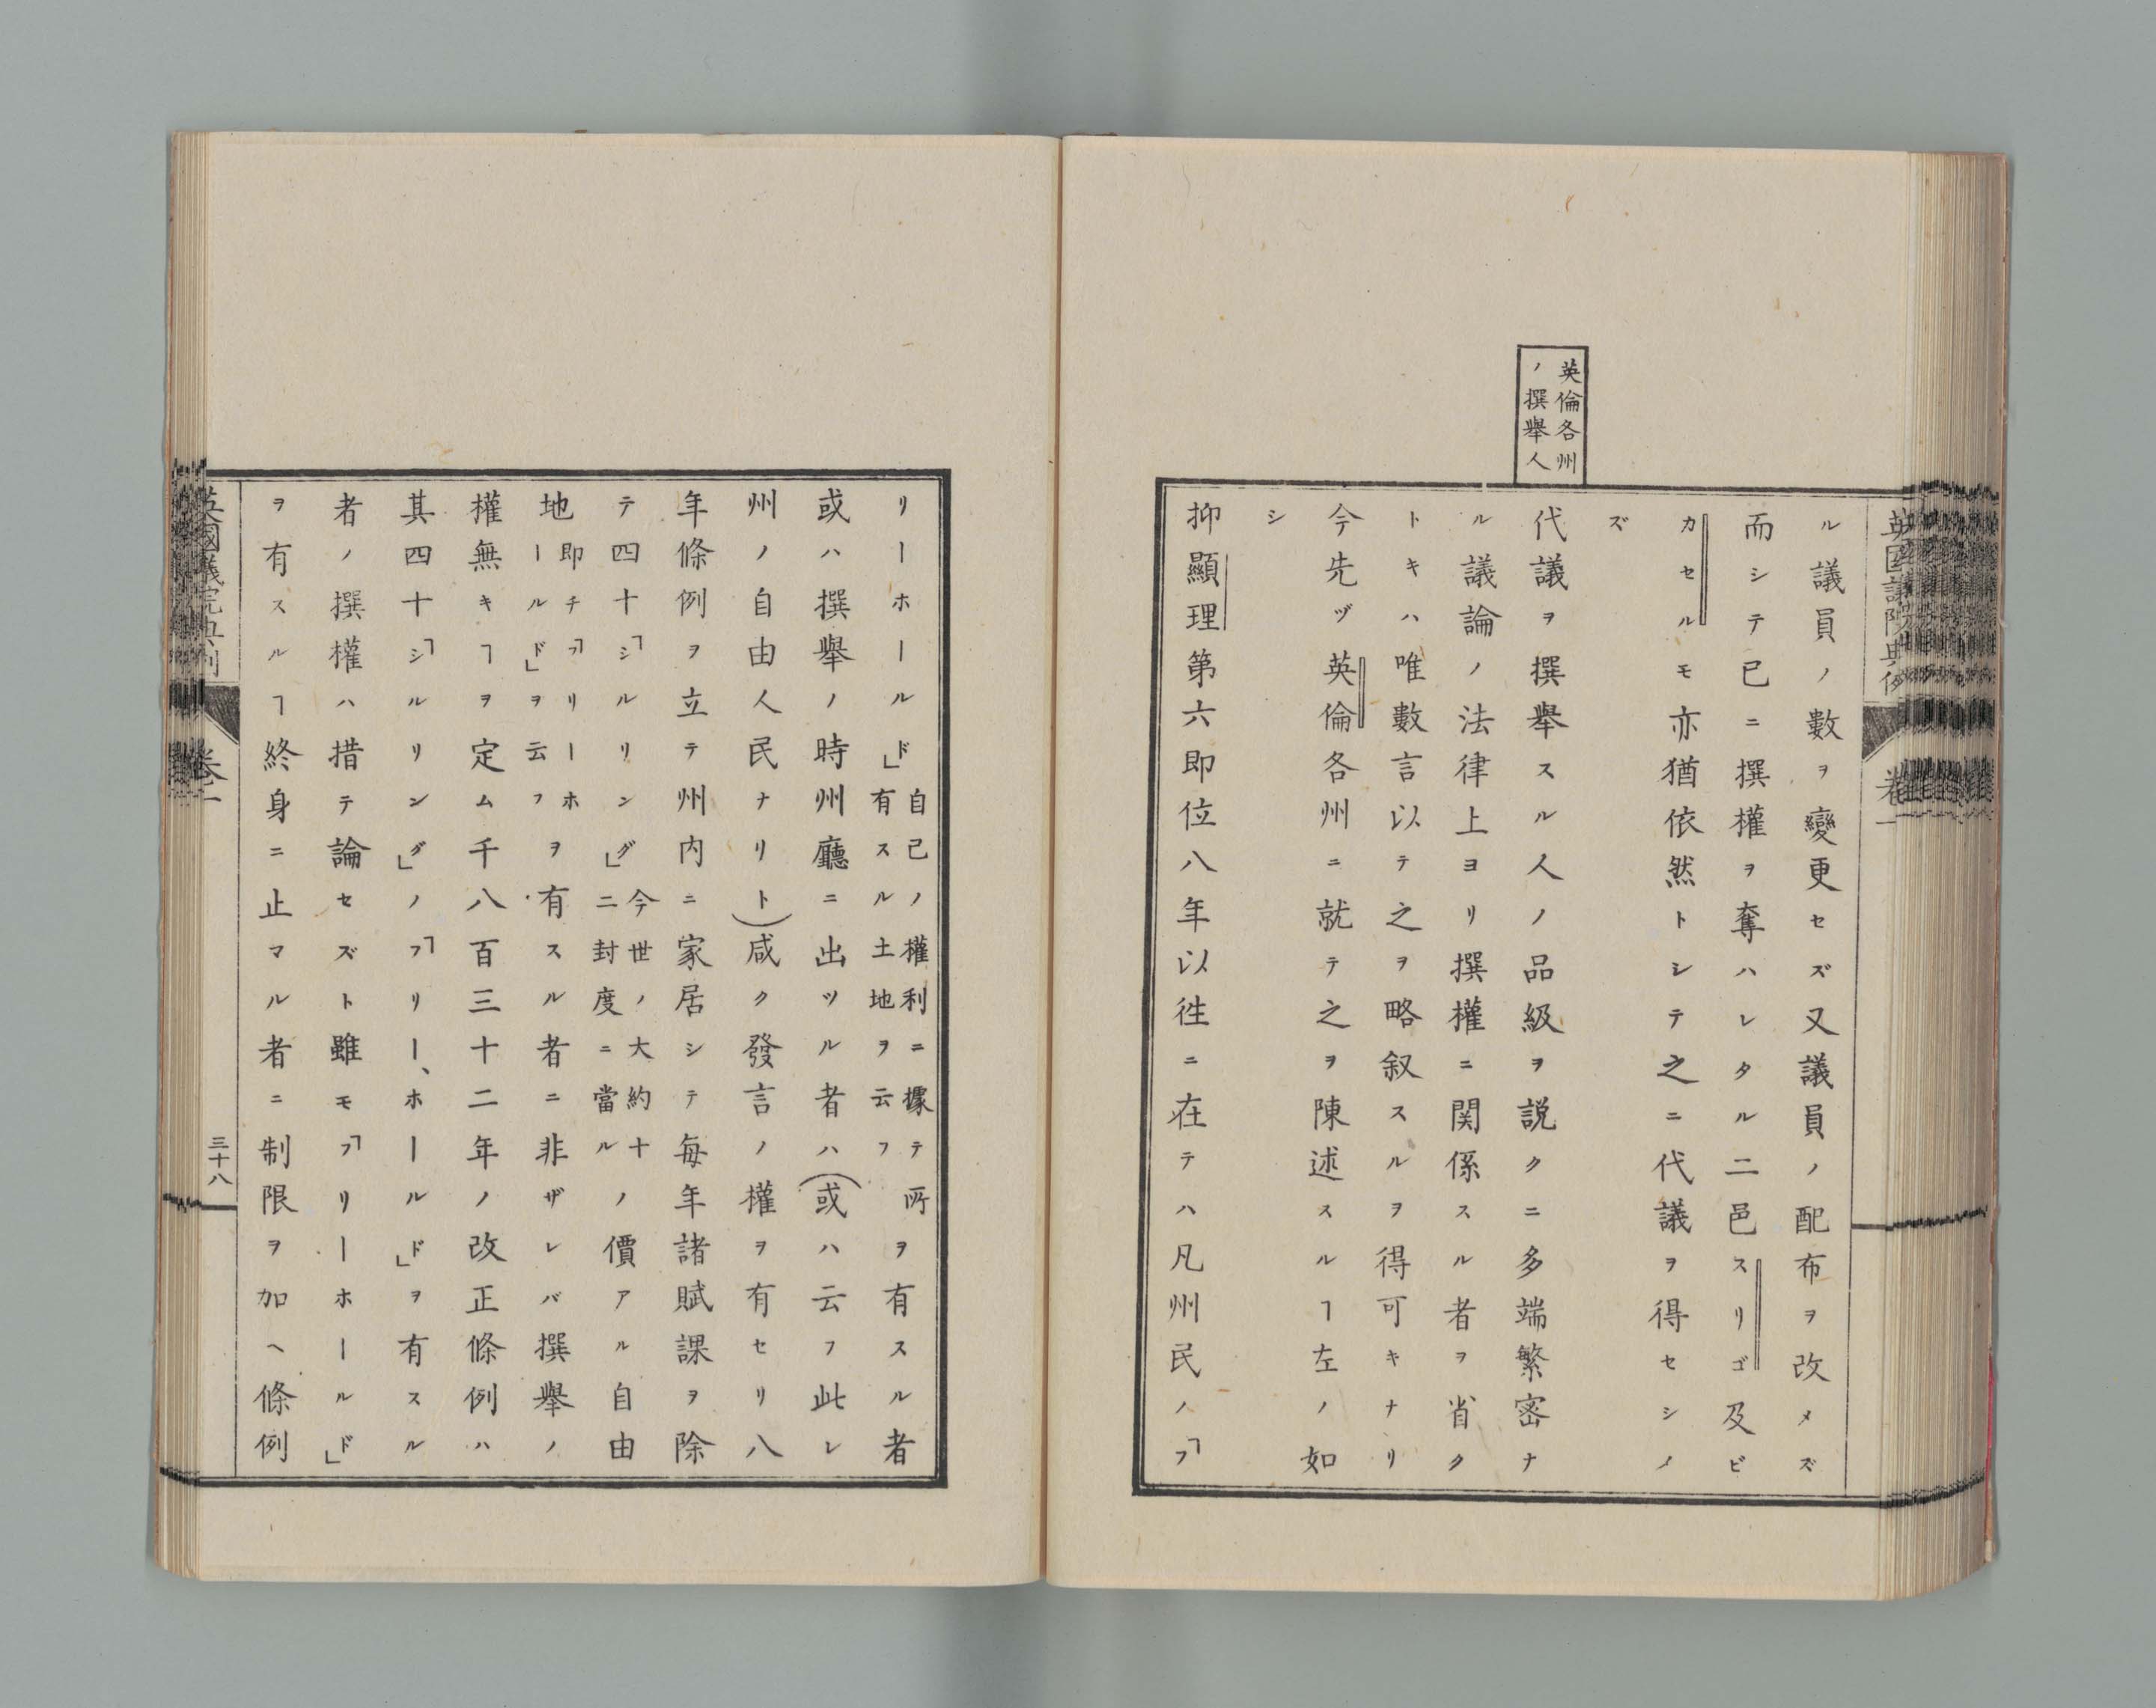 英國議院典例 卷一
英倫各州
ノ撰擧人
ル議員ノ數ヲ變更セズ又議員ノ配布ヲ改メズ
而シテ已ニ撰權ヲ奪ハレタル二邑スリゴ及ビ
カセルモ亦猶依然トシテ之ニ代議ヲ得セシメ
ズ
代議ヲ撰擧スル人ノ品級ヲ説クニ多端繁密ナ
ル議論ノ法律上ヨリ撰權ニ関係スル者ヲ省ク
トキハ唯數言以テ之ヲ略叙スルヲ得可キナリ
今先ヅ英倫各州ニ就テ之ヲ陳述スルヿ左ノ如
シ
抑顯理第六即位八年以徃ニ在テハ凡州民ノ「フ
リーホールド」自己ノ權利ニ據テ所有スル土地ヲ云フヲ有スル者
或ハ撰擧ノ時州廳ニ出ツル者ハ(或ハ云フ此レ
州ノ自由人民ナリト)咸ク發言ノ權ヲ有セリ八
年條例ヲ立テ州内ニ家居シテ毎年諸賦課ヲ除
テ四十「シルリング」今世ノ大約十二封度ニ當ルノ價アル自由
地即チ「フリーホールド」ヲ云フヲ有スル者ニ非ザレバ撰擧ノ
權無キヿヲ定ム千八百三十二年ノ改正條例ハ
其四十「シルリング」ノ「フリー、ホールド」ヲ有スル
者ノ撰權ハ措テ論セズト雖モ「フリーホールド」
ヲ有スルヿ終身ニ止マル者ニ制限ヲ加ヘ條例
英國議院典例 卷一 三十八